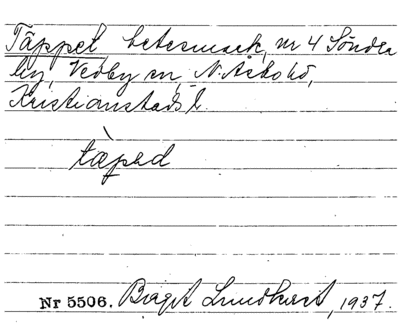 Täppet, betesmark, nr 4 Söndra
by, Vedby sn, N. Åsbo hd,
Kristianstads l.
tæ̀pəd
Nr 5506. Birgit Lundkvist, 1937.